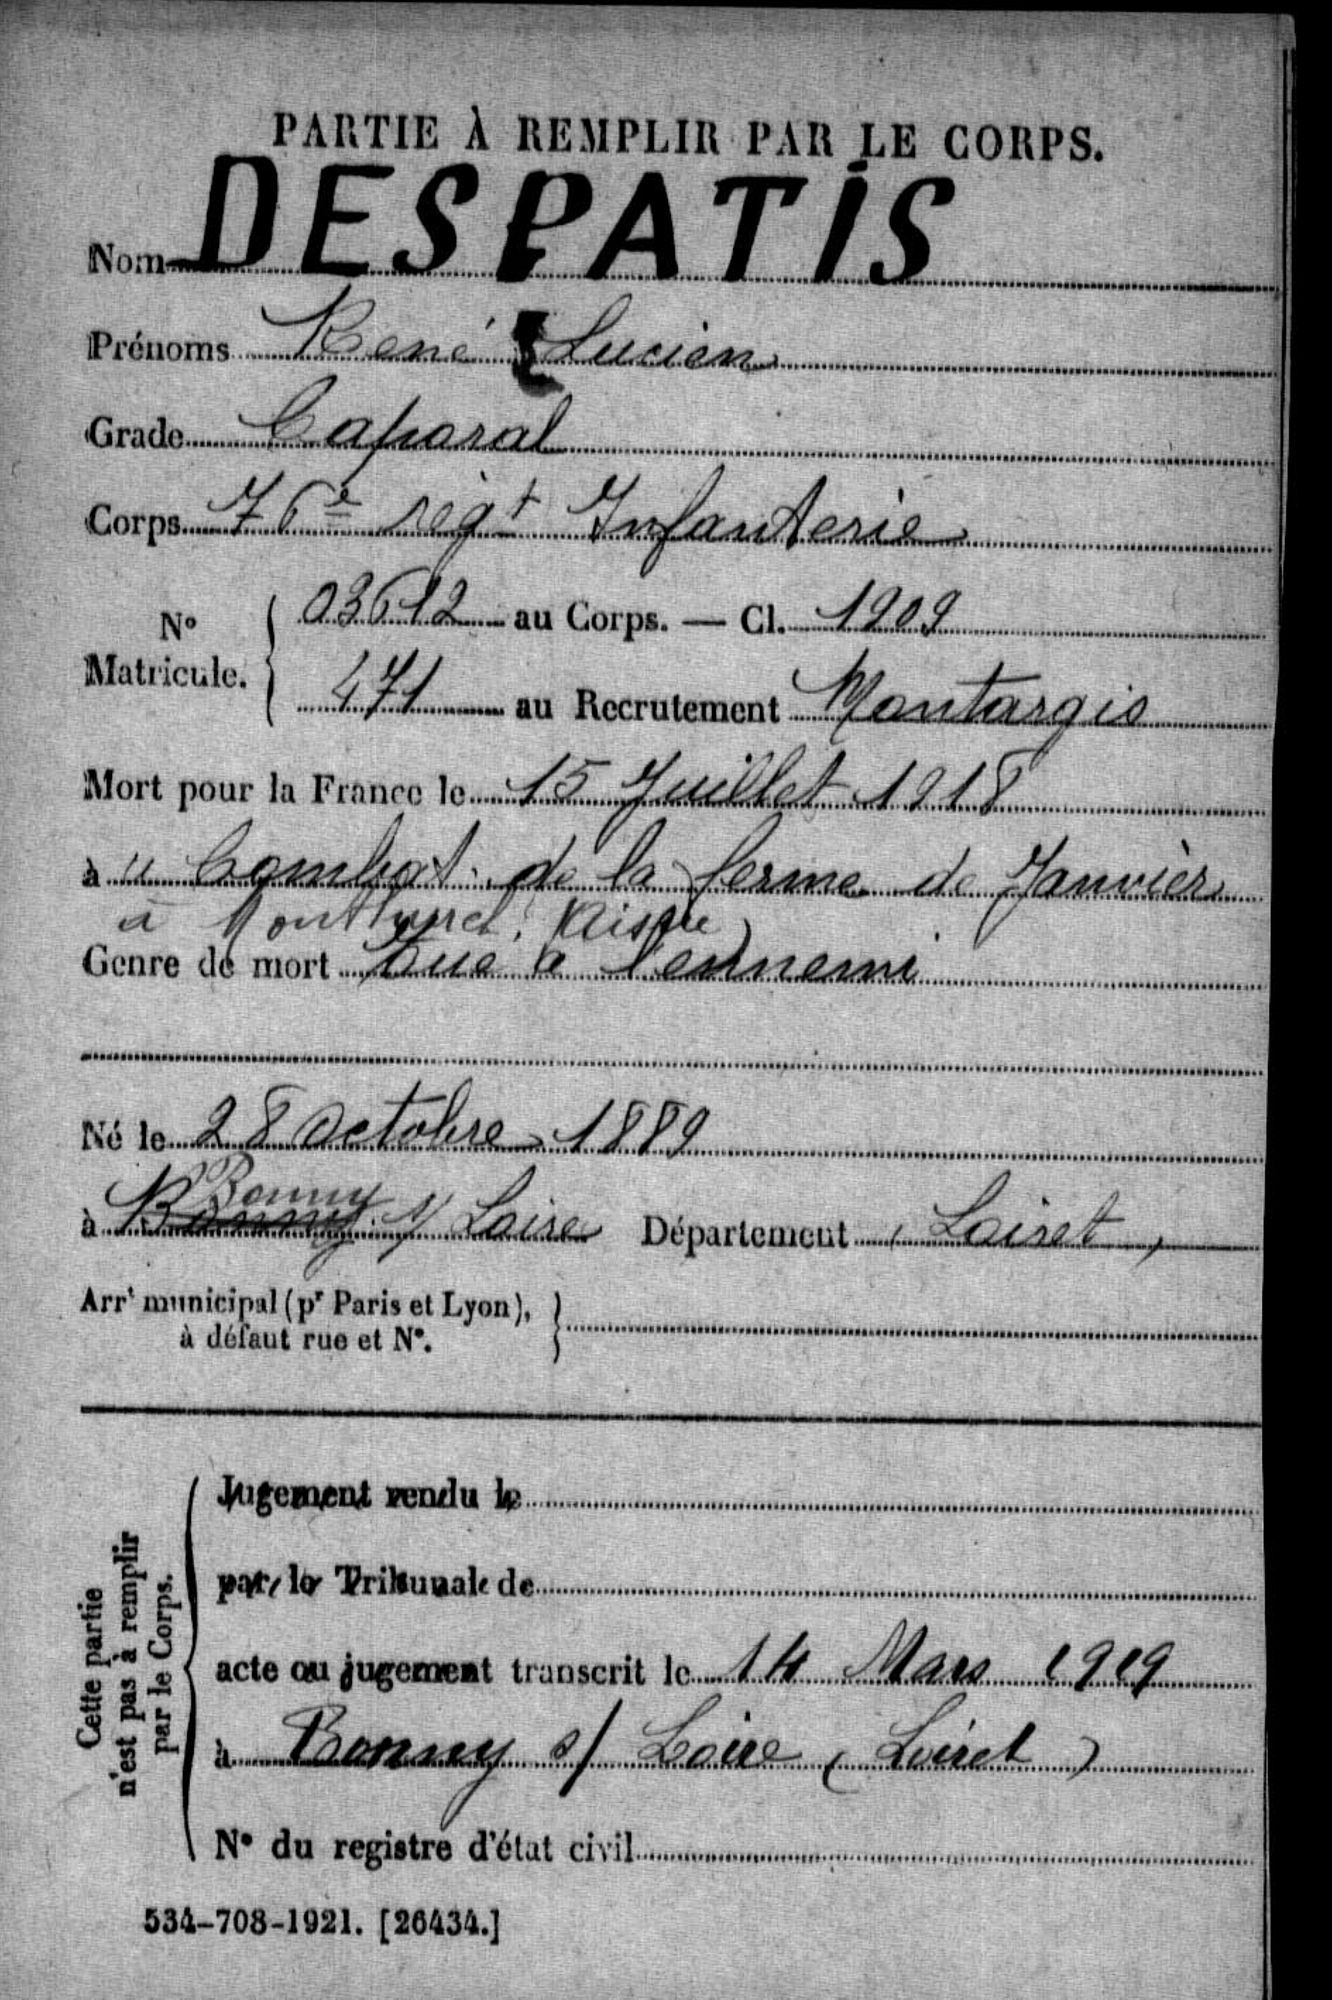 PARTIE À REMPLIR PAR LE CORPS.
Nom DESPATIS
Prénoms René Lucien
Grade Caporal
Corps 76e régt Infanterie
No Matricule. { 03612 au Corps. — Cl. 1909
471 au Recrutement Montargis
Mort pour la France le 15 Juillet 1918
à u Combat de la ferme de Janvier
à Monthurel. Aisne
Genre de mort Tué à l'ennemi
Né le 28 Octobre 1889
Bonny
à Bonny s/ Loire Département Loiret
Arrt municipal (pr Paris et Lyon), à défaut rue et No. }
Cette partie n'est pas à remplir par le Corps. {
Jugement rendu le
par le Tribunal de
acte ou jugement transcrit le 14 Mars 1919
à Bonny s/ Loire (Loiret)
No du registre d'état civil
534-708-1921. [26434.]